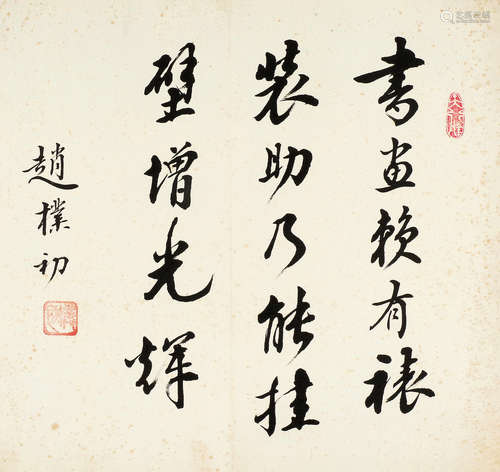 書画賴有裱
裝助乃能挂
壁增光輝
趙樸初